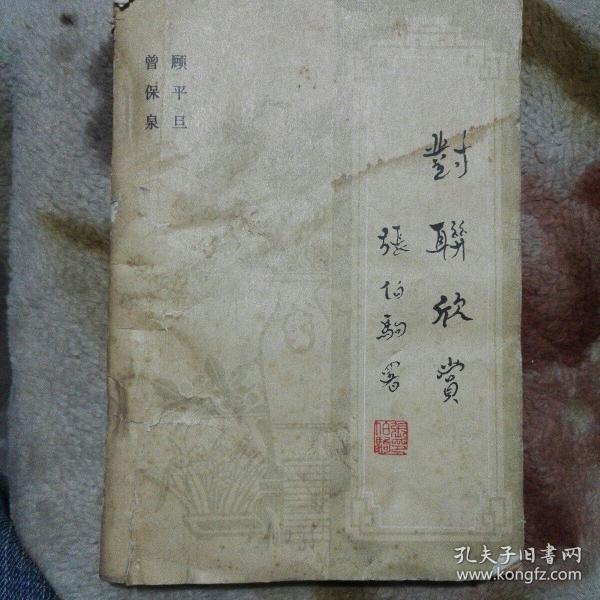 對聯欣賞
張伯駒署
顾平旦
曾保泉
孔夫子旧書网
www.kongfz.com